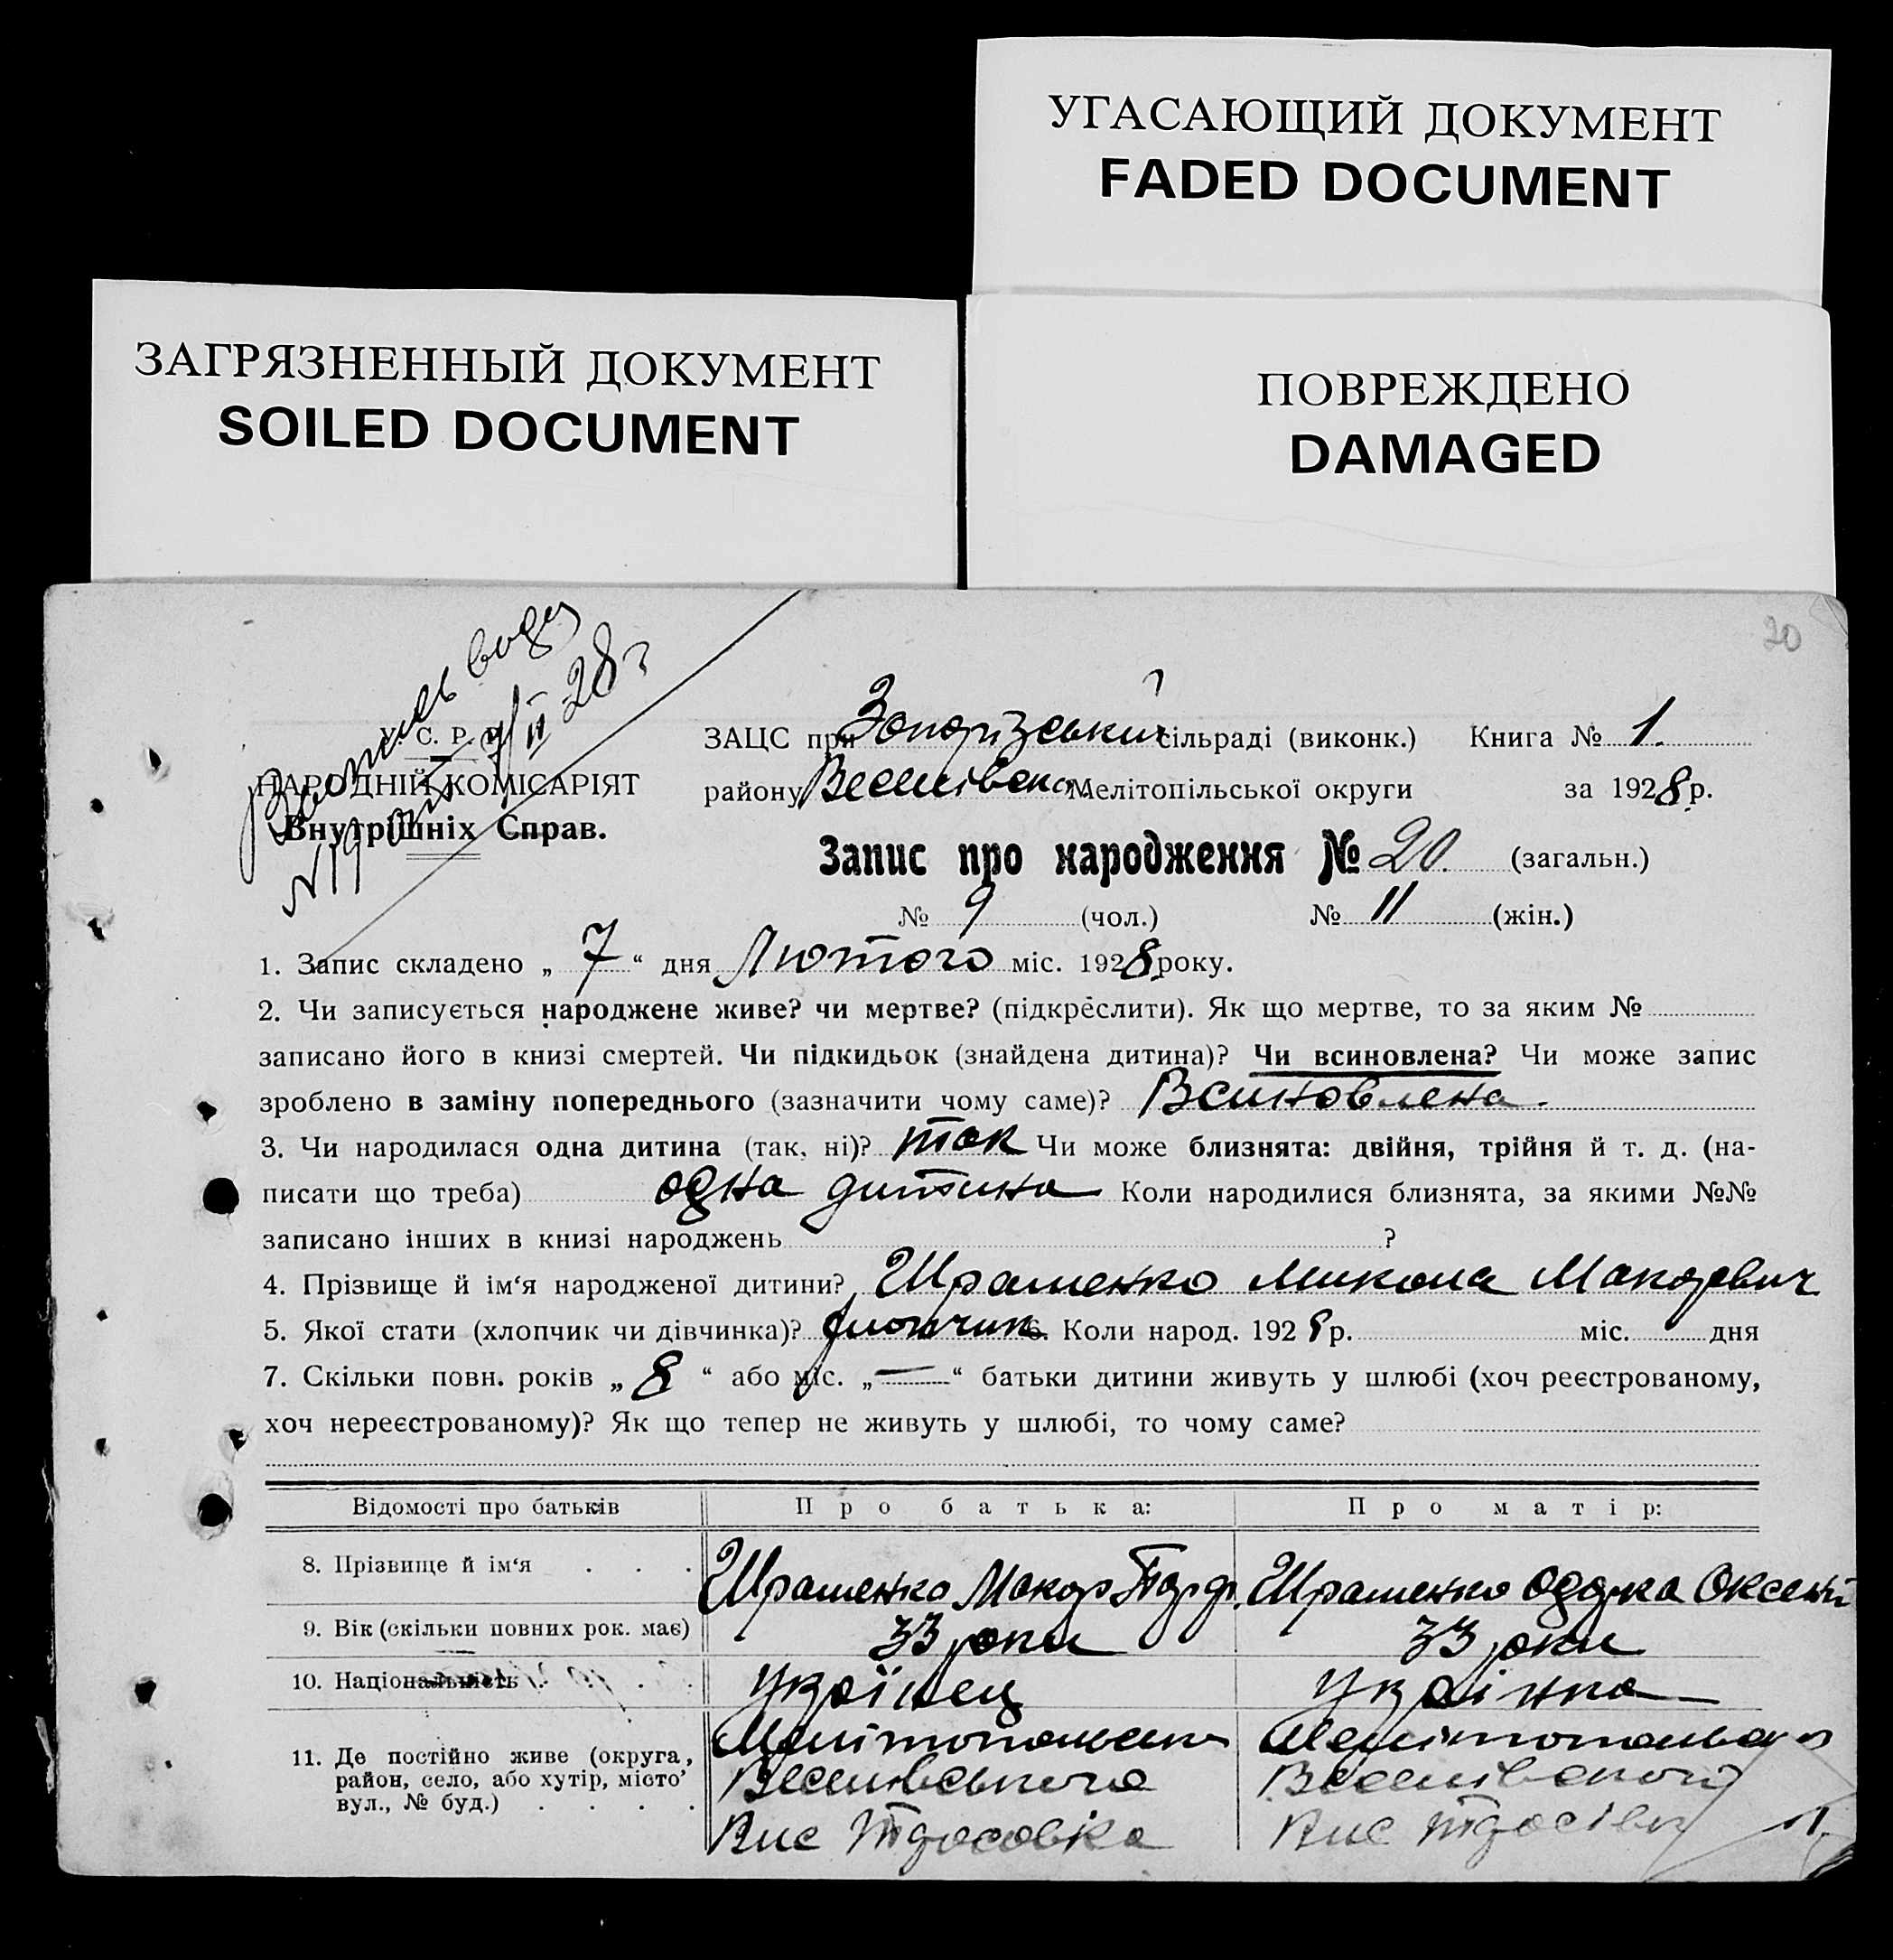 УГАСАЮЩИЙ ДОКУМЕНТ
FADED DOCUMENT
ЗАГРЯЗНЕННЫЙ ДОКУМЕНТ
SOILED DOCUMENT
ПОВРЕЖДЕНО
DAMAGED
20
28 г
У. С. Р. Р.
НАРОДНІЙ КОМІСАРІЯТ
Внутрішніх Справ.
ЗАЦС при Запорізький сільраді (виконк.) Книга № 1.
району Веселівськ Мелітопільської округи за 1928 р.
Запис про народження № 20. (загальн.)
№ 9 (чол.) № 11 (жін.)
1. Запис складено „ 7 “ дня Лютого міс. 1928 року.
2. Чи записується народжене живе? чи мертве? (підкреслити). Як що мертве, то за яким №
записано його в книзі смертей. Чи підкидьок (знайдена дитина)? Чи всиновлена? Чи може запис
зроблено в заміну попереднього (зазначити чому саме)? Всиновлена.
3. Чи народилася одна дитина (так, ні)? так Чи може близнята: двійня, трійня й т. д. (на-
писати що треба) одна дитина Коли народилися близнята, за якими №№
записано інших в книзі народжень ?
4. Прізвище й ім‘я народженої дитини? Ираменко Микола Макарович
5. Якої стати (хлопчик чи дівчинка)? хлопчик 6. Коли народ. 1928 р. міс. дня
7. Скільки повн. років „ 8 “ або міс. „ — “ батьки дитини живуть у шлюбі (хоч реєстрованому,
хоч нереєстрованому)? Як що тепер не живуть у шлюбі, то чому саме?
Відомості про батьків Про батька: Про матір:
8. Прізвище й ім‘я . . . Ираменко Макар Ираменко Оксент
9. Вік (скільки повних рок. має) 33 роки 33 роки
10. Національність Українец Українка
11. Де постійно живе (округа,
район, село, або хутір, місто,
вул., № буд.) . . . .
Мелітопольськ
Веселівського
Вис Тарасовка
Мелітопольськ
Веселівського
Вис Тарасівк